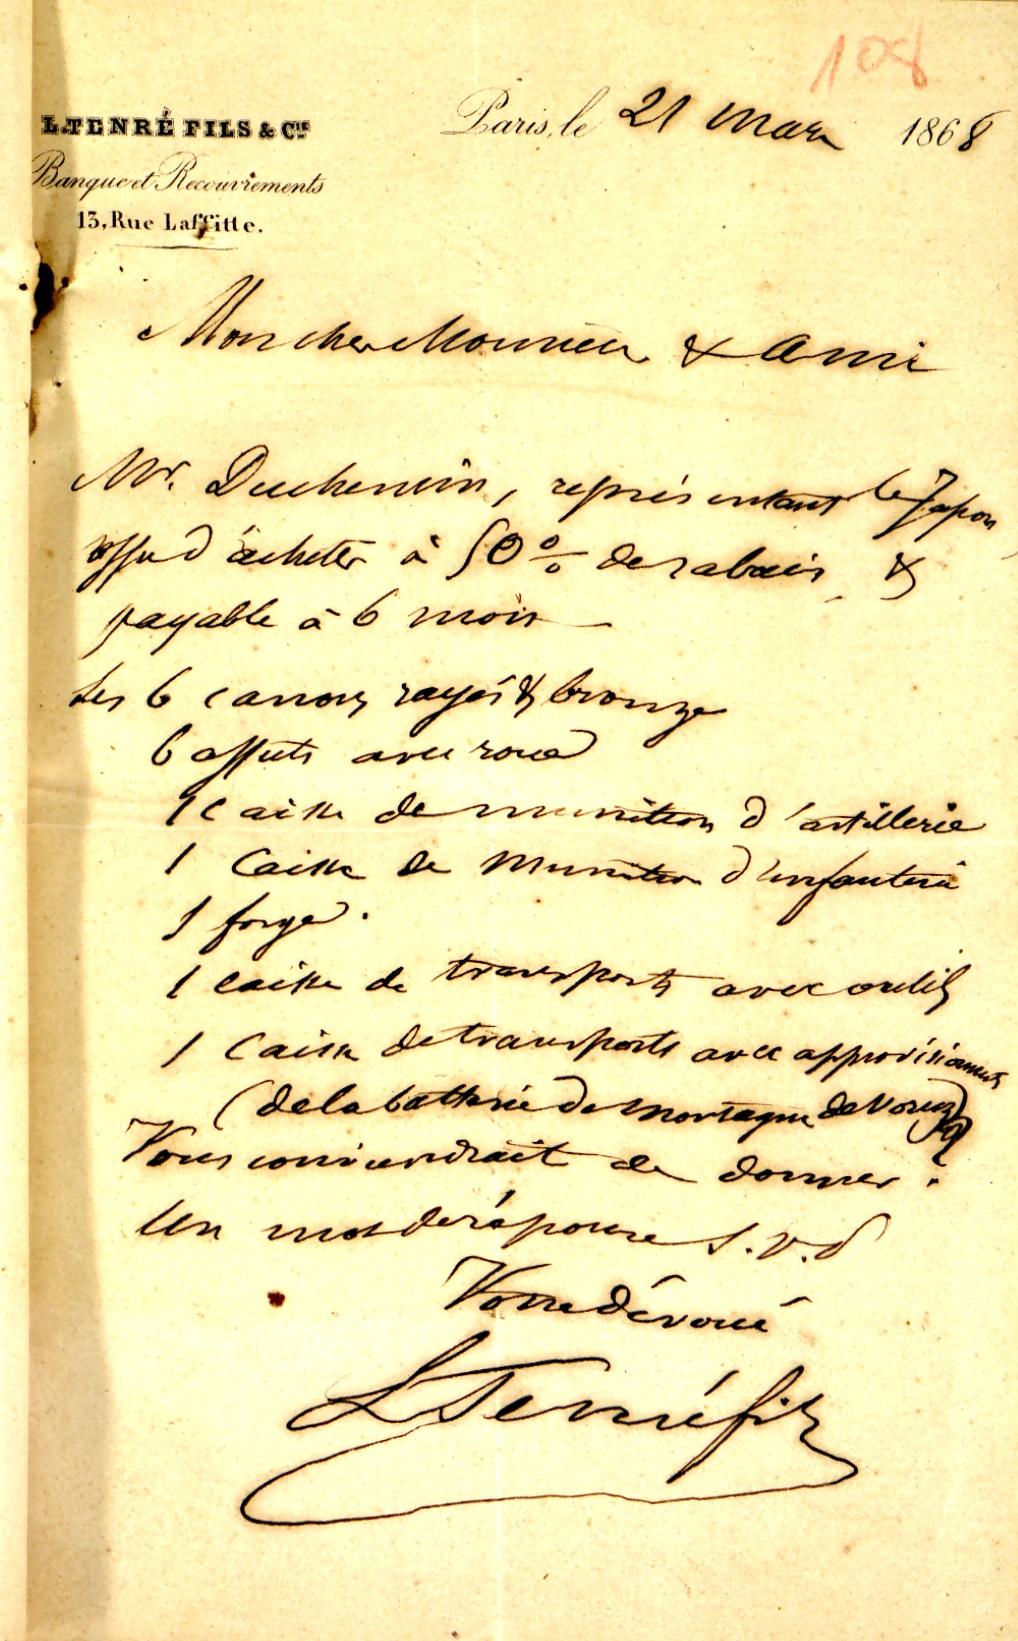 108
L. TENRÉ FILS & Cie
Paris, le 21 Mars 1868
Banque et Recouvrements
13, Rue Laffitte.
Mon cher Monsieur & Ami
Mr. Duchenin, représentant le Japon
offre d'acheter à 50 % de rabais, &
payable à 6 mois
Les 6 canons rayés & bronze
6 affuts avec roues
1 caisse de munitions d'artillerie
1 Caisse de Munition d'infanterie
1 forge.
1 caisse de transports avec outils
1 Caisse de transports avec approvisionnements
(de la batterie de Montagne de Voruz)
Vous conviendrait de donner ?
Un mot de réponse S.V.P
Votre dévoué
L Tenré fils